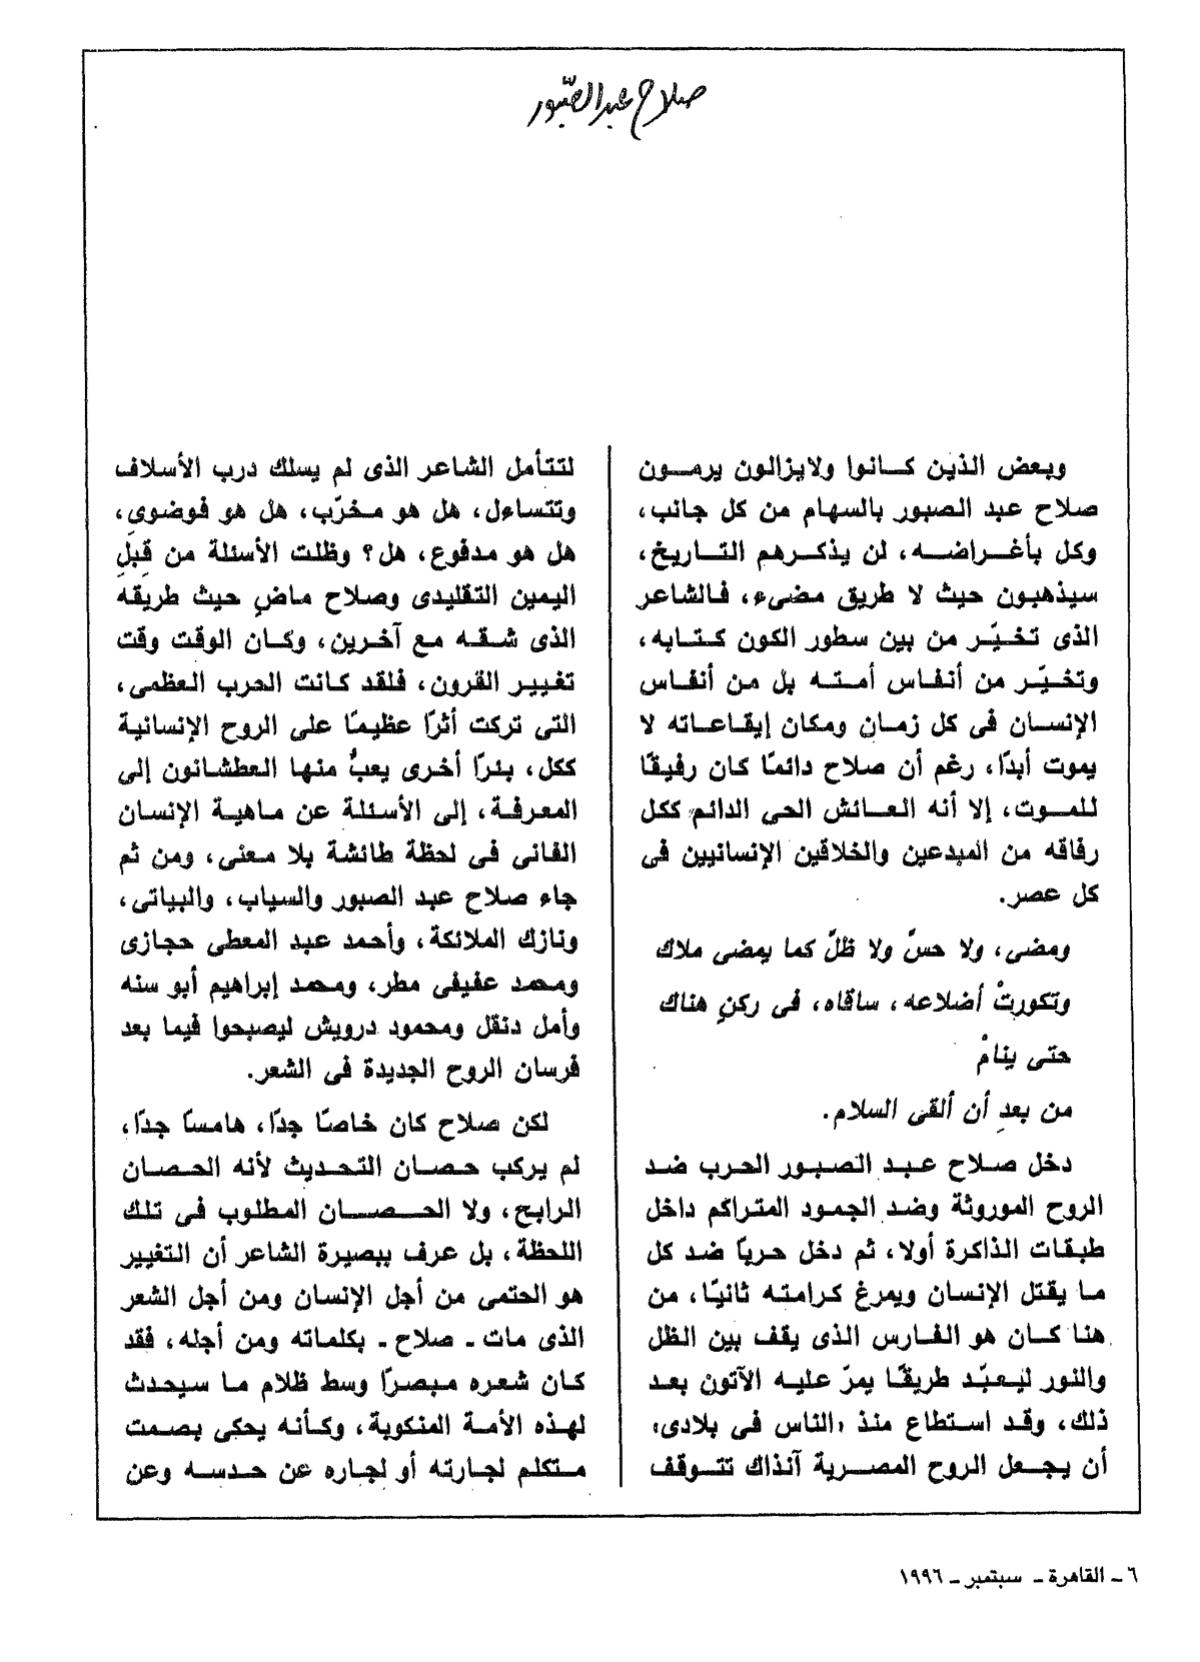 صلاح عبد الصبور
وبعض الذين كانوا ولايزالون يرمون
صلاح عبد الصبور بالسهام من كل جانب،
وكل بأغراضه، لن يذكرهم التاريخ،
سيذهبون حيث لا طريق مضىء، فالشاعر
الذى تخيّر من بين سطور الكون كتابه،
وتخيّر من أنفاس أمته بل من أنفاس
الإنسان فى كل زمان ومكان إيقاعاته لا
يموت أبدًا، رغم أن صلاح دائمًا كان رفيقًا
للموت، إلا أنه العائش الحى الدائم ككل
رفاقه من المبدعين والخلاقين الإنسانيين فى
كل عصر.
ومضى، ولا حسّ ولا ظلّ كما يمضى ملاك
وتكورتْ أضلاعه، ساقاه، فى ركنٍ هناك
حتى ينامْ
من بعدِ أن ألقى السلام.
دخل صلاح عبد الصبور الحرب ضد
الروح الموروثة وضد الجمود المتراكم داخل
طبقات الذاكرة أولا، ثم دخل حربًا ضد كل
ما يقتل الإنسان ويمرغ كرامته ثانيًا، من
هنا كان هو الفارس الذى يقف بين الظل
والنور ليعبّد طريقًا يمرّ عليه الآتون بعد
ذلك، وقد استطاع منذ «الناس فى بلادى»
أن يجعل الروح المصرية آنذاك تتوقف
لتتأمل الشاعر الذى لم يسلك درب الأسلاف
وتتساءل، هل هو مخرّب، هل هو فوضوى،
هل هو مدفوع، هل؟ وظلت الأسئلة من قِبَلِ
اليمين التقليدى وصلاح ماضٍ حيث طريقه
الذى شقه مع آخرين، وكان الوقت وقت
تغيير القرون، فلقد كانت الحرب العظمى،
التى تركت أثرًا عظيمًا على الروح الإنسانية
ككل، بئرًا أخرى يعبُّ منها العطشانون إلى
المعرفة، إلى الأسئلة عن ماهية الإنسان
الفانى فى لحظة طائشة بلا معنى، ومن ثم
جاء صلاح عبد الصبور والسياب، والبياتى،
ونازك الملائكة، وأحمد عبد المعطى حجازى
ومحمد عفيفى مطر، ومحمد إبراهيم أبو سنه
وأمل دنقل ومحمود درويش ليصبحوا فيما بعد
فرسان الروح الجديدة فى الشعر.
لكن صلاح كان خاصًا جدًا، هامسًا جدًا،
لم يركب حصان التحديث لأنه الحصان
الرابح، ولا الحصان المطلوب فى تلك
اللحظة، بل عرف ببصيرة الشاعر أن التغيير
هو الحتمى من أجل الإنسان ومن أجل الشعر
الذى مات ـ صلاح ـ بكلماته ومن أجله، فقد
كان شعره مبصرًا وسط ظلام ما سيحدث
لهذه الأمة المنكوبة، وكأنه يحكى بصمت
متكلم لجارته أو لجاره عن حدسه وعن
٦ ـ القاهرة ـ سبتمبر ـ ١٩٩٦